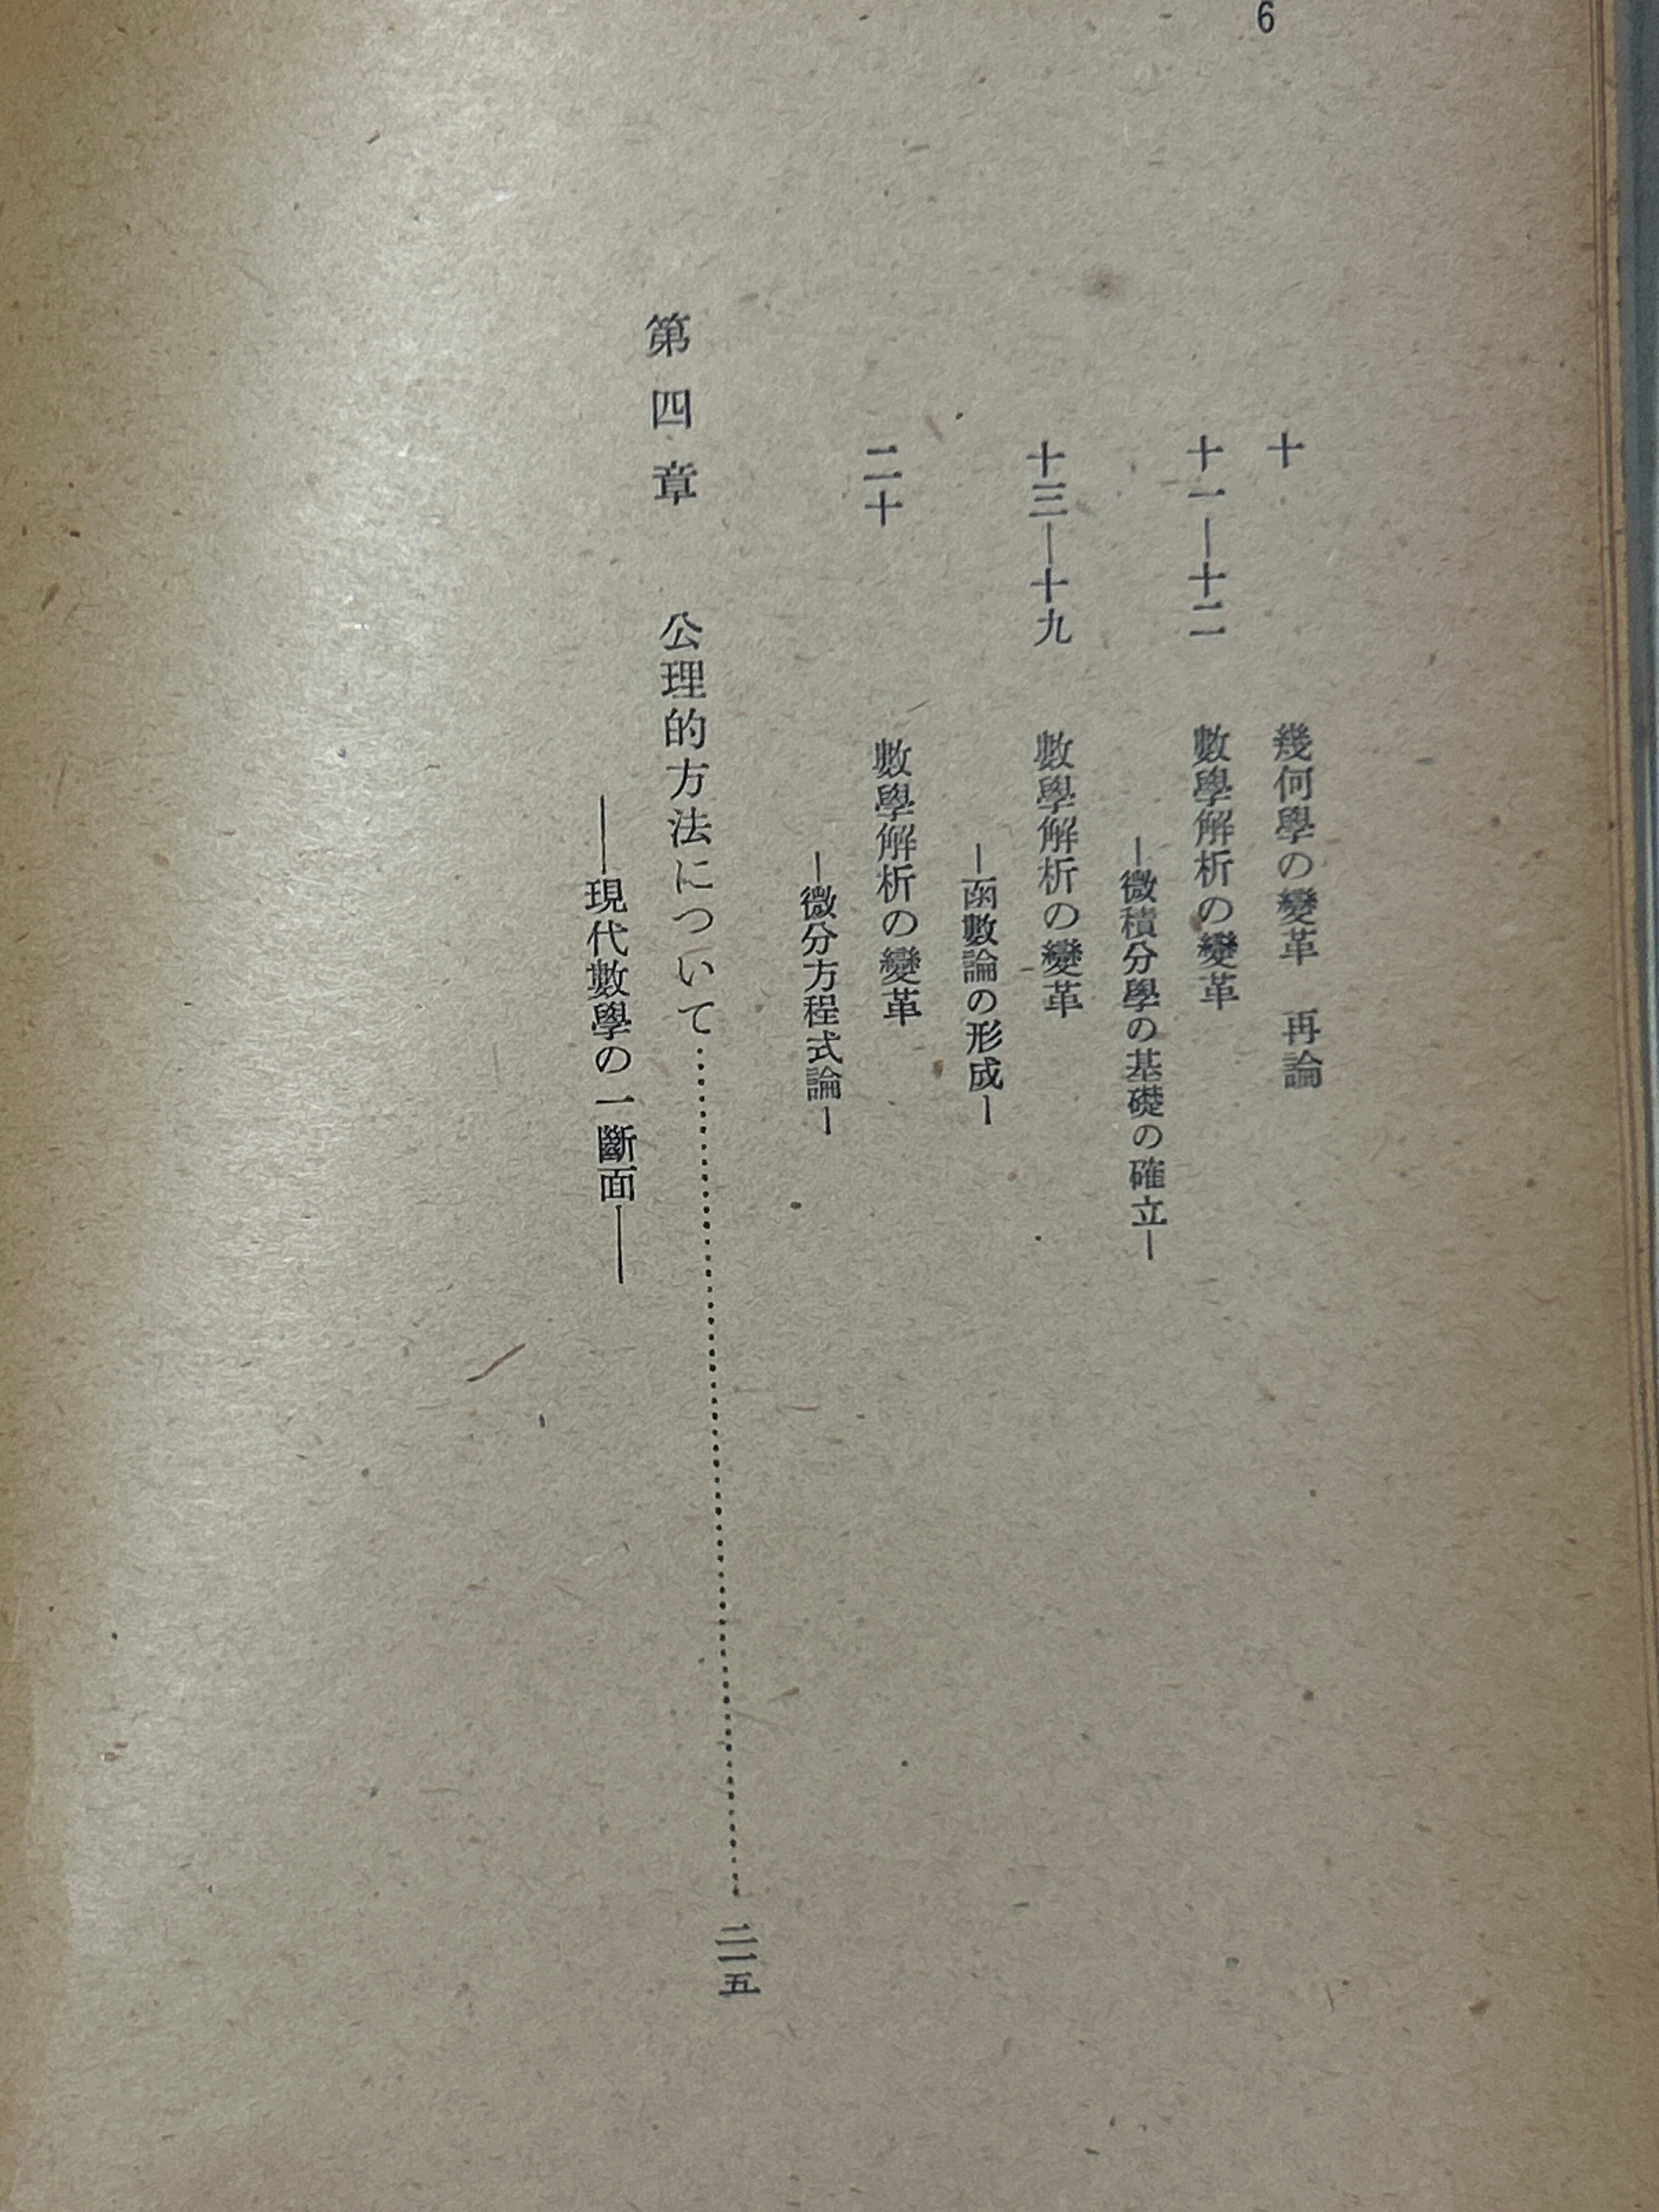 6
十　幾何學の變革　再論
十一―十二　數學解析の變革
―微積分學の基礎の確立―
十三―十九　數學解析の變革
―函數論の形成―
二十　數學解析の變革
―微分方程式論―
第四章　公理的方法について……………………………二一五
――現代數學の一斷面――